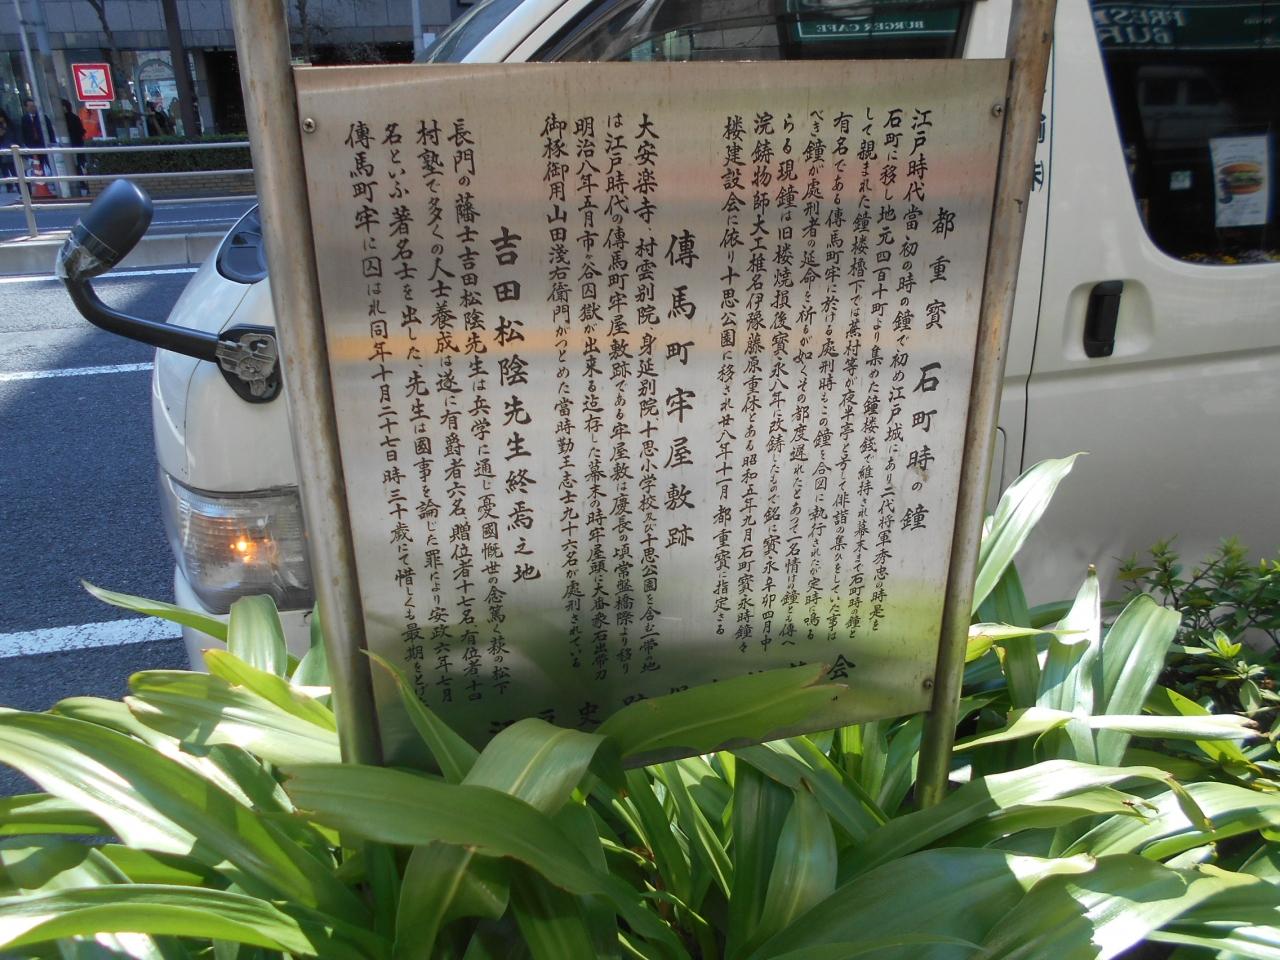 都重寳 石町時の鐘
江戸時代當初の時の鐘で初め江戸城にあり二代将軍秀忠の時是を
石町に移し地元四百十町より集めた鐘楼銭で維持され幕末まで石町時の鐘と
して親まれた鐘楼櫓下では蕪村等が夜半亭と号して俳諧の集ひをしていた事は
有名である傳馬町牢に於ける處刑時もこの鐘を合図に執行されたが定時に鳴る
べき鐘が處刑者の延命を祈るが如くその都度遅れたとあって一名情けの鐘とも傳へ
らる現鐘は旧楼焼損後寳永八年に改鋳したもので銘に寳永辛卯四月中
浣鋳物師大工椎名伊豫藤原重休とある昭和五年九月石町寳永時鐘々
楼建設会に依り十思公園に移され廿八年十一月都重寳に指定さる
傳馬町牢屋敷跡
大安楽寺、村雲別院、身延別院、十思小学校及び十思公園を含む一帯の地
は江戸時代の傳馬町牢屋敷跡である牢屋敷は慶長の頃常盤橋際より移り
明治八年五月市ヶ谷囚獄が出来る迄存した幕末の時牢屋頭に大番衆石出帯刀
御椓御用山田淺右衛門がつとめた當時勤王志士九十六名が處刑されている
吉田松陰先生終焉之地
長門の藩士吉田松陰先生は兵学に通じ憂國慨世の念篤く萩の松下
村塾で多くの人士養成は遂に有爵者六名、贈位者十七名、有位者十四
名といふ著名士を出した、先生は國事を論じた罪により安政六年七月
傳馬町牢に囚はれ同年十月二十七日時三十歳にて惜しくも最期をとげ
江
史
会
BURGER CAFE
FRESH